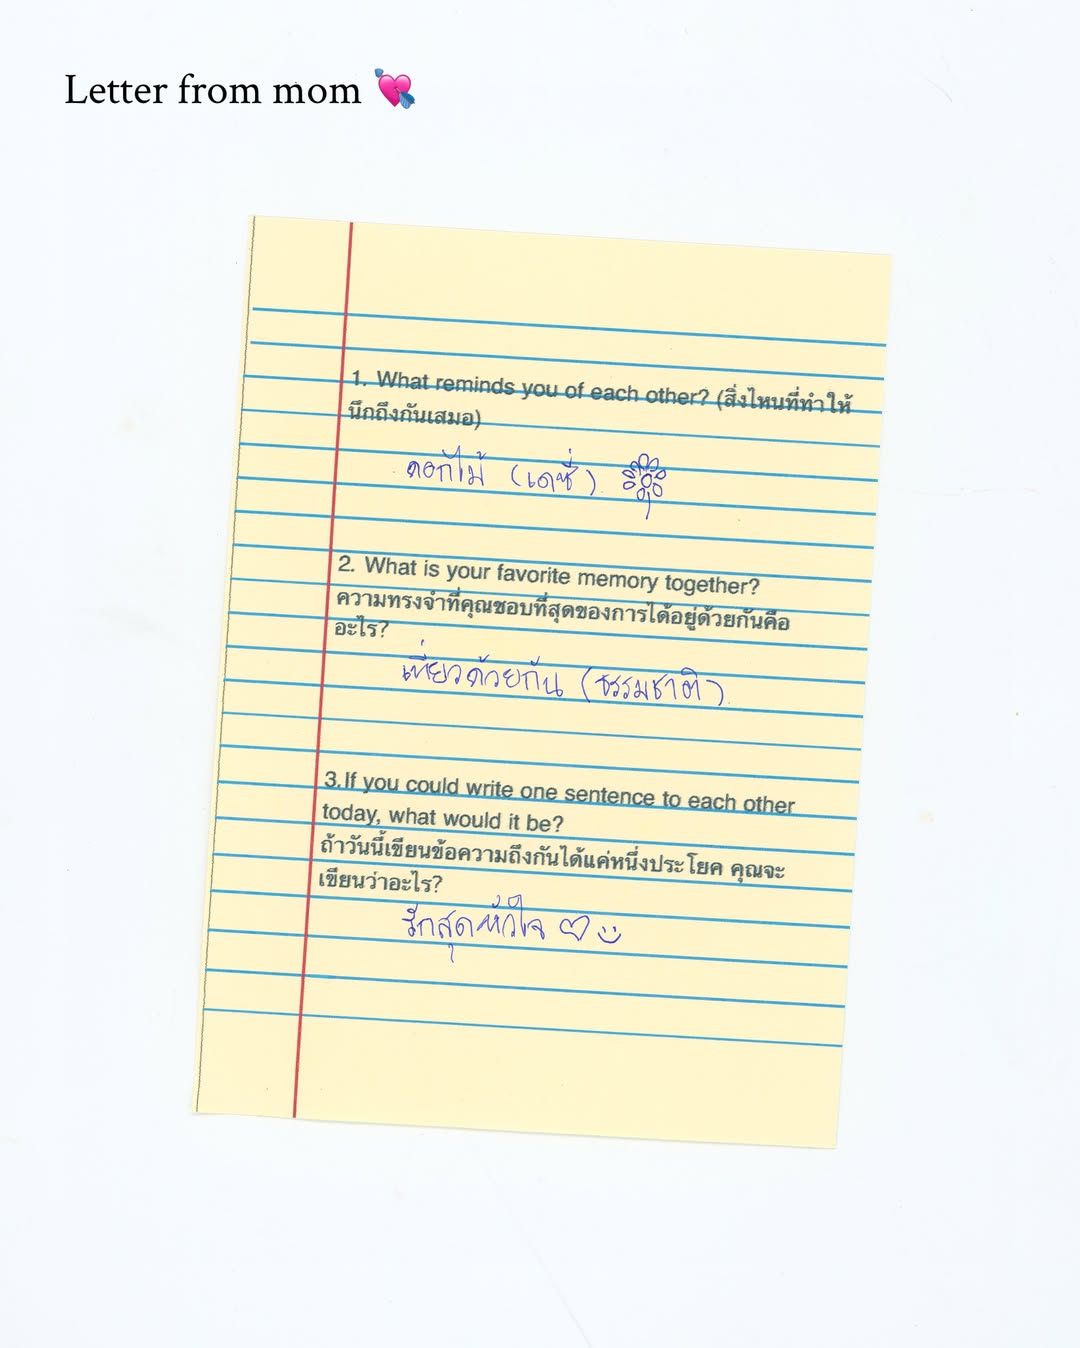 Letter from mom 💘
1. What reminds you of each other? (สิ่งไหนที่ทำให้
นึกถึงกันเสมอ)
ดอกไม้ (เดซี่)
2. What is your favorite memory together?
ความทรงจำที่คุณชอบที่สุดของการได้อยู่ด้วยกันคือ
อะไร?
เที่ยวด้วยกัน (ธรรมชาติ).
3.If you could write one sentence to each other
today, what would it be?
ถ้าวันนี้เขียนข้อความถึงกันได้แค่หนึ่งประโยค คุณจะ
เขียนว่าอะไร?
รักสุดหัวใจ ♡☺